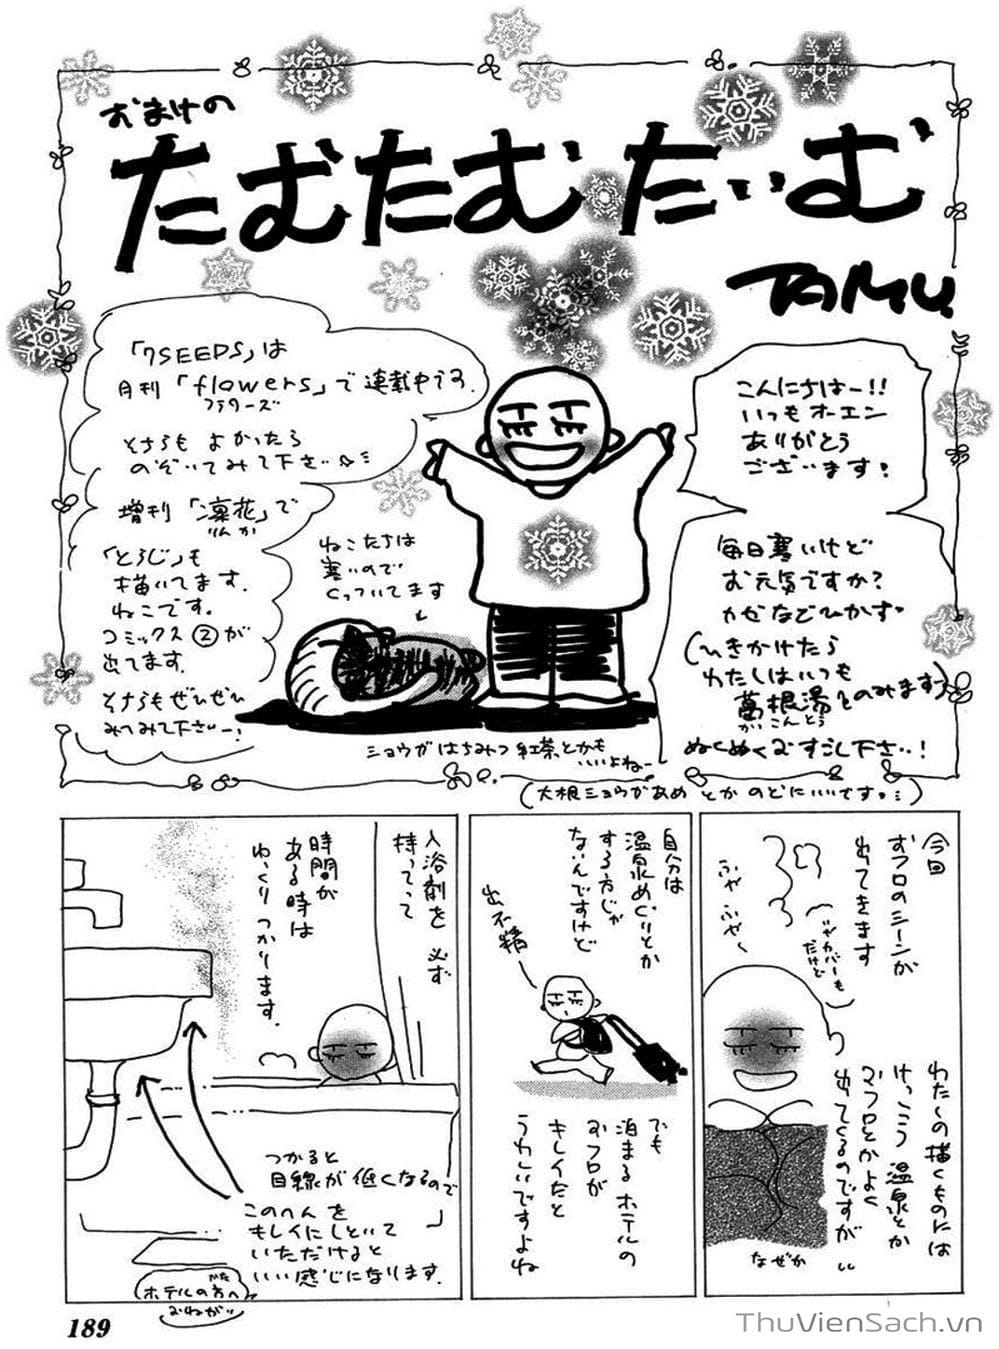 おまけの
たむたむたいむ
TAMU.
こんにちはー!!
いつもオーエン
ありがとう
ございます!
毎日寒いけど
お元気ですか?
カゼなどひかず
(ひきかけたら
わたしはいつも
葛根湯とのみます)
かっこんとう
ぬくぬくおすごし下さい!
「7SEEDS」は
月刊「flowers」で連載中です.
フラワーズ
そちらもよかったら
のぞいてみて下さい
増刊「凛花」で
りんか
「とらじ」も
描いてます.
ねこです。
コミックス②が
出てます.
そちらもぜひぜひ
みてみて下さいー!
ねこたちは
寒いので
くっついてます
ショウガはちみつ紅茶とかも
いいよねー
(大根ショウガあめとかのどにいいです)
今回
おフロのシーンが
出てきます
(カバーも
だけど)
ふや ふや〜
わたしの描くものには
けっこう温泉とか
おフロとかよく
出てくるのですが
なぜか
自分は
温泉めぐりとか
する方じゃ
ないんですけど
出不精
でも
泊まるホテルの
おフロが
キレイだと
うれしいですよね
入浴剤を必ず
持ってって
時間が
ある時は
ゆっくりつかります.
つかると
目線が低くなるので
このへんを
キレイにしといて
いただけると
いい感じになります.
ホテルの方へ
かた
おねがい
189
ThuVienSach.vn